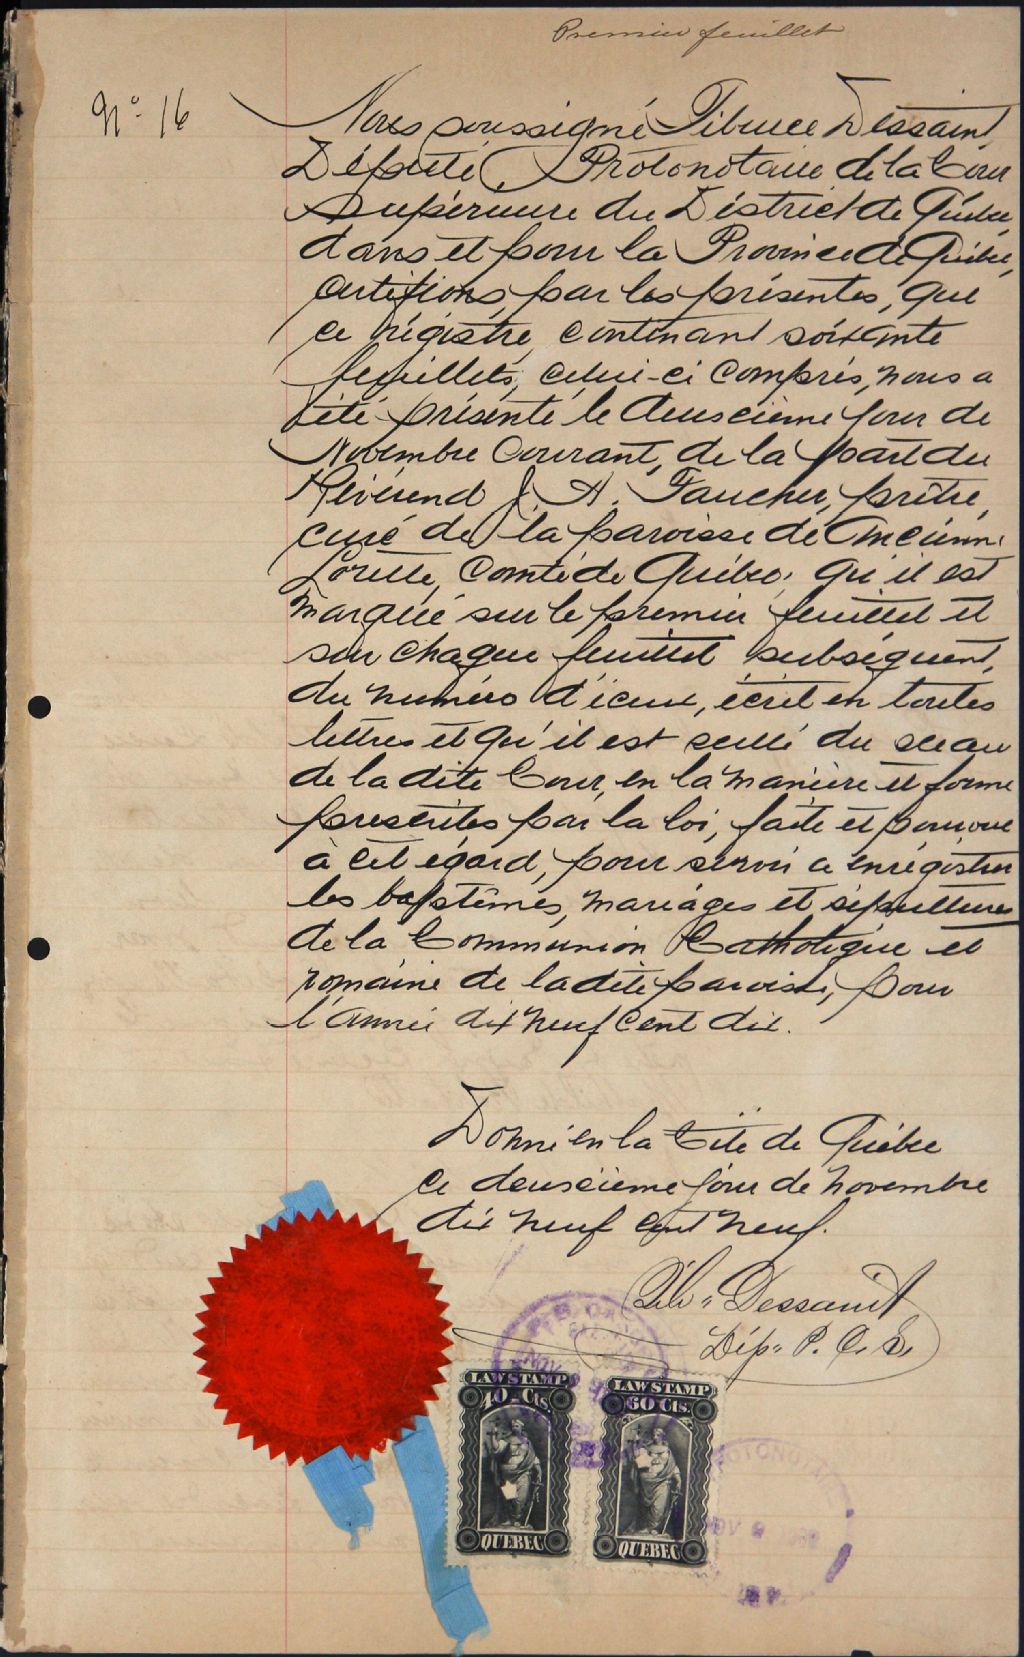 Premier feuillet
No. 16
Nous soussigné Tiburce Dessaint,
Député Protonotaire de la Cour
Supérieure du District de Québec,
dans et pour la Province de Québec,
certifions, par les présentes, que
ce régistre, contenant soixante
feuillets, celui-ci compris, nous a
été présenté le deuxcième jour de
Novembre Courant, de la part du
Révérend J. H. Faucher, prêtre,
curé de la paroisse de Ancienne
Lorette, Comté de Québec, qu'il est
marqué sur le premier feuillet et
sur chaque feuillet subséquent,
du numéro d'iceux, écrit en toutes
lettres et qu'il est scellé du sceau
de la dite Cour, en la manière et forme
prescrites par la loi, faite et pourvue
à cet égard, pour servir a enrégistrer
les baptêmes, mariages et sépultures
de la Communion Catholique et
romaine de la dite paroisse, pour
l'Année dix neuf cent dix.
Donné en la Cité de Québec
ce deuxcième jour de novembre
dix neuf cent neuf.
Tib. Dessaint
Dép. P. C. S.
LAW STAMP LAW STAMP
40 Cts. 60 Cts.
QUEBEC QUEBEC